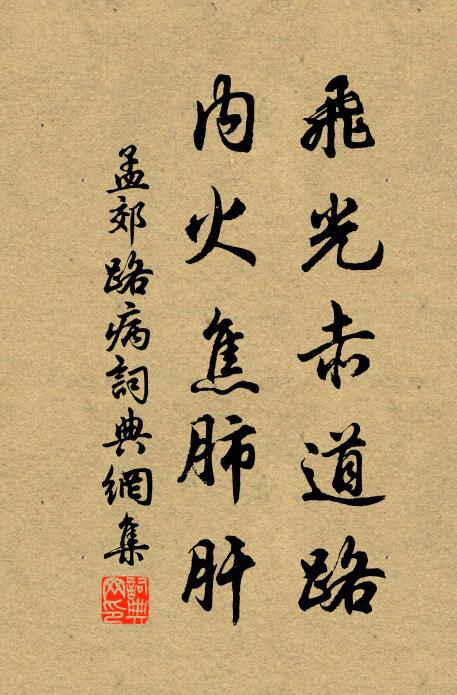 飛光赤道路
内火焦肺肝
孟郊路病詞典網集
詞典網印